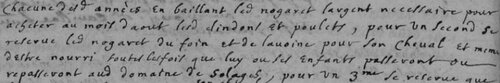 chacune desd années en baillant led nogaret largent necessaire pour
acheter au mois daout lesd dindons et poulets, pour un second se
reserve led nogaret du foin et de lavoine pour son cheval et meme
destre nourri toutes les fois que luy ou ses enfants passeront ou
repasseront aud domaine de solages, pour un 3me se reserve que